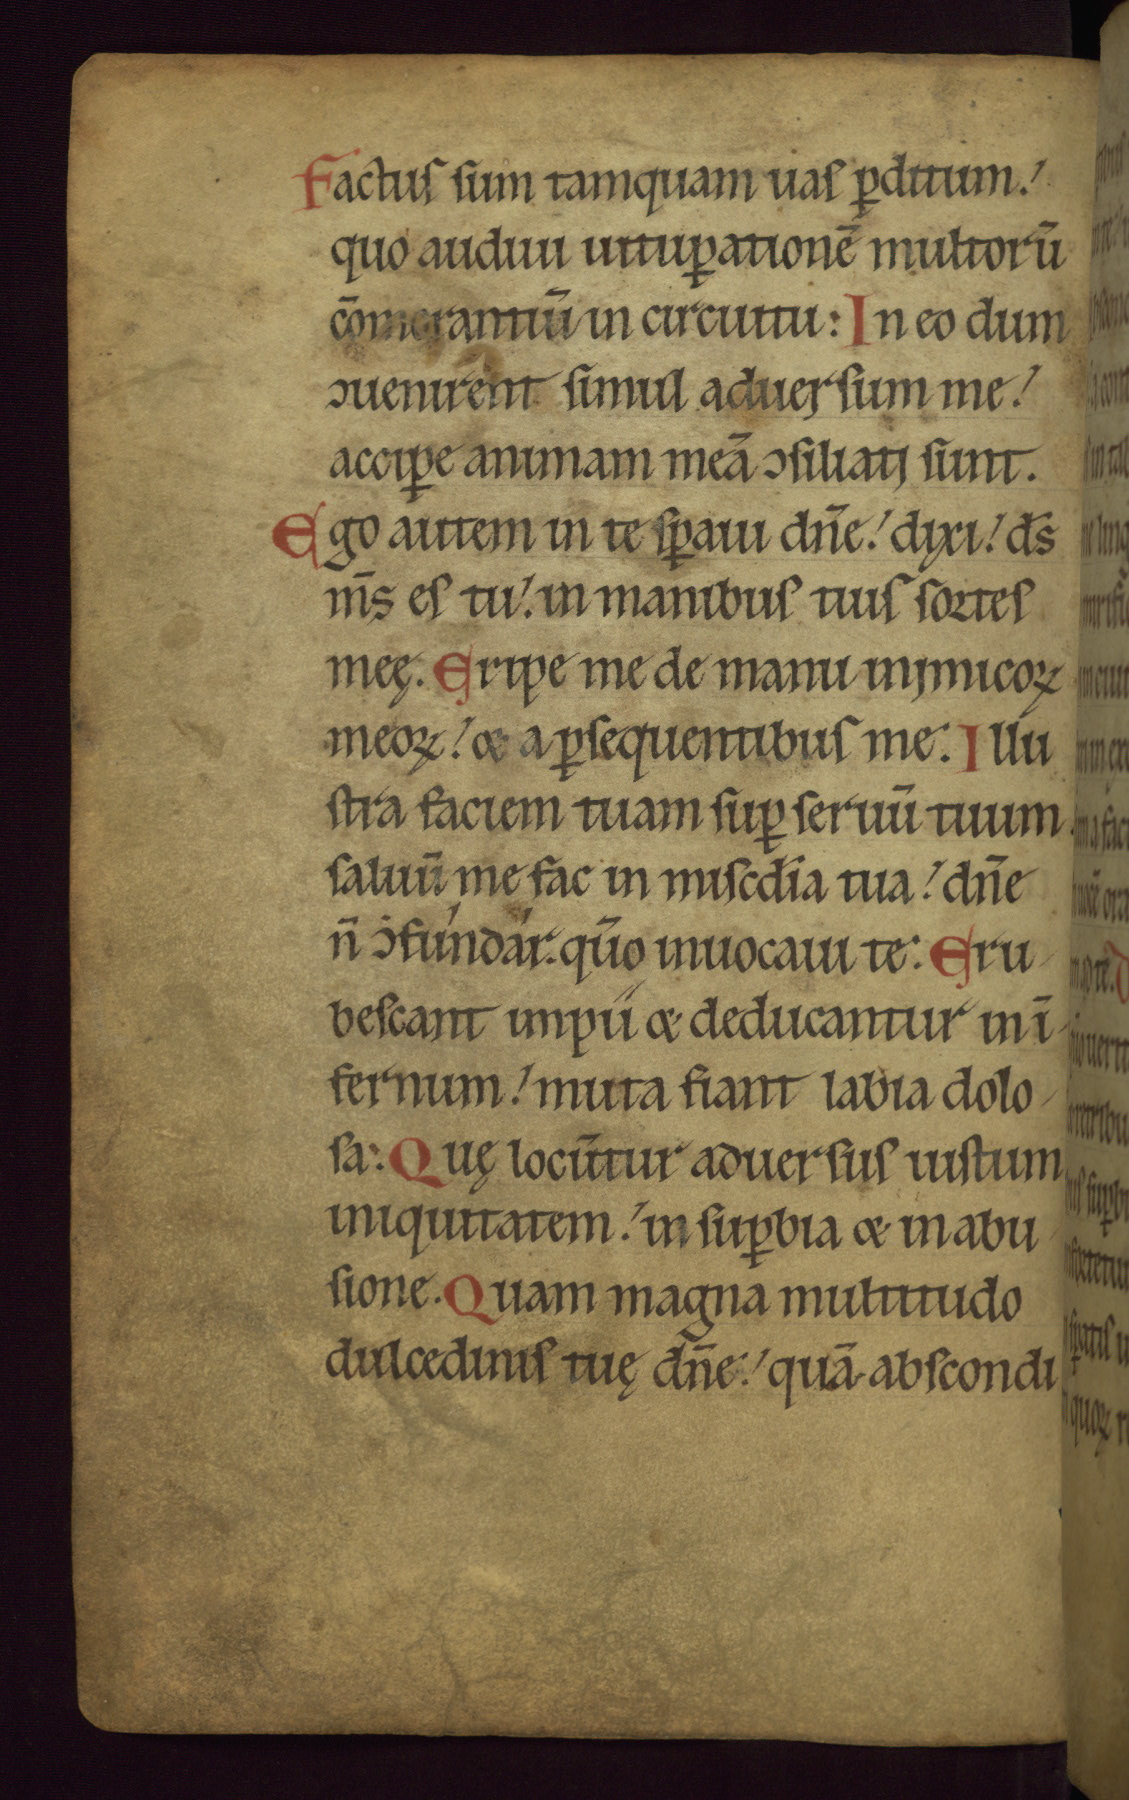 Factus sum tamquam uas ꝑditum.
quo audiui uituꝑationē multorū
cōmorantiū in circuitu: In eo dum
ɔuenirent simul aduersum me.
acciꝑe animam meā ɔsiliati sunt.
Ego autem in te sꝑaui dn̄e. dixi. ds̄
ms̄ es tu. in manibus tuis sortes
meę. Eripe me de manu inimicoꝝ
meoꝝ. & a ꝑsequentibus me. Illu
stra faciem tuam suꝑ seruū tuum
saluū me fac in miscd̄ia tua. dn̄e
n̄ ɔfundar. qūo inuocaui te. Eru
bescant impii & deducantur in ī
fernum. muta fiant labia dolo
sa. Quę locūtur aduersus iustum
iniquitatem. in suꝑbia & in abu
sione. Quam magna multitudo
dulcedinis tuę dn̄e. quā abscondi